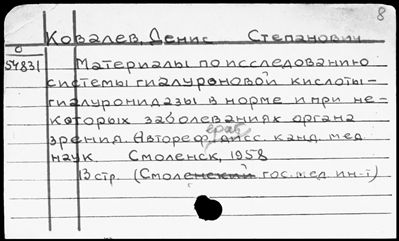 8
Ковалев, Денис Степанович
0
54831
Материалы по исследованию
системы гиалуроновой кислоты-
гиалуронидазы в норме и при не-
которых заболеваниях органа
зрения. Автореф. дисс. канд. мед
наук. Смоленск, 1958
13 стр. (Смоленский гос. мед ин-т)